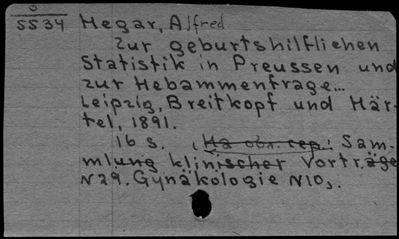 5
5534 Hegar, Alfred
Zur geburtshilflichen
Statistik in Preussen und
zur Hebammenfrage...
Leipzig, Breitkopf und Här-
tel, 1891.
16 s. (На обл. сер.: Sam-
mlung klinischer Vorträge
N29. Gynäkologie N10).